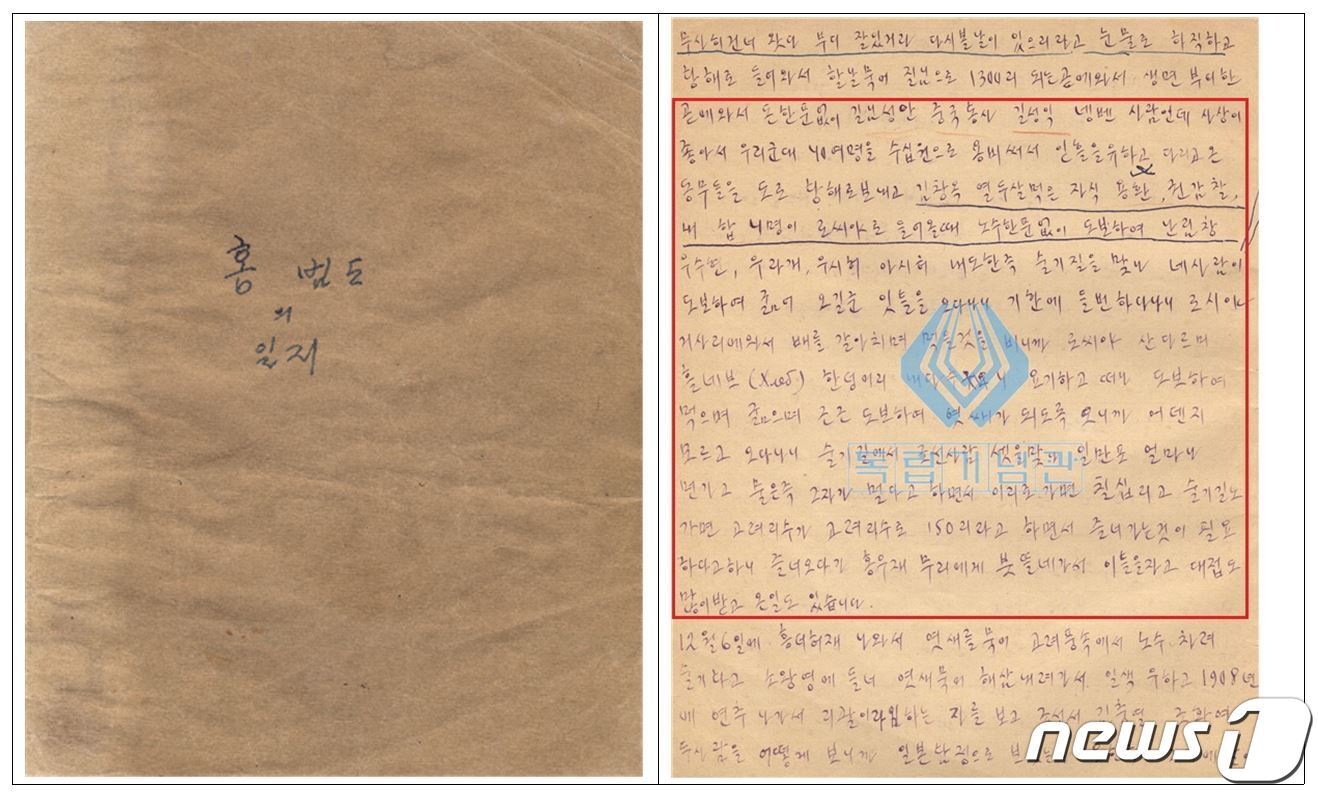 홍범도
의
일지
무사히건너 왓다 부디 잘잇거라 다시볼날이 있으리라고 눈물로 하직하고
황해로 들어와서 할날묵어 질님으로 1300리 되는곧에와서 생면부디한
곧에와서 돈한푼없이 길님성안 중국통사 길성익 넹벤 사람인데 사상이
좋아서 우리군대 40여명을 수십원으로 용비써서 일흘을유하고 다리고온
동무들을 도로 황해로보내고 김창옥 열두살먹은 자식 용환, 권감찰,
내 합 너명이 로씨아로 들어올때 노수한푼없이 도보하여 난림창
우수현, 우라개, 우시허 아시허 내도한즉 술기질을 맞나 네사람이
도보하여 굶어 오길군 잇틀을 오다나니 기한에 들번하다나니 로시아
거사리에와서 배를 갈아치며 먹을것을 비니까 로씨아 산다르미
흘네브 (хлеб) 한덩이리 요기하고 떠나 도보하여
먹으며 굶으며 근근 도보하여 엿쌔가 되도록 오니까 어덴지
모르고 오다나니 술기길에서 조선사람 셋을맞나 일만포 얼마나
먼가고 물은즉 그자가 멀다고 하면서 이리로가면 칠십리고 술기길노
가면 고려리수가 고려리수로 150리라고 하면서 즐너가는것이 필요
하다고하니 즐너오다가 홍우재 무리에게 붓뜰네가서 이틀을자고 대접도
많이받고 온일도 있습니다.
12월6일에 흥더허재 나와서 엿새를묵어 고려풍속에서 노수 차려
술기타고 소왕영에 들너 엿새묵어 해삼내려가서 일색 유하고 1908년
에 연추 나가서 하는 자를 보고 조선서 김충열 조화여
두사람을 어떻게 보니까 일본탄정으로
독립기념관
news1